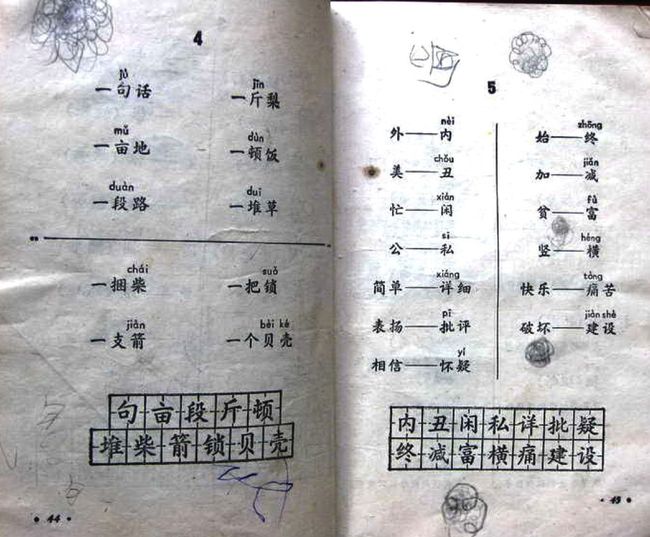 4
jù jīn
一句话 一斤梨
mǔ dùn
一亩地 一顿饭
duàn duī
一段路 一堆草
chái suǒ
一捆柴 一把锁
jiàn bèi ké
一支箭 一个贝壳
句亩段斤顿
堆柴箭锁贝壳
44
5
nèi zhōng
外——内 始——终
chǒu jiǎn
美——丑 加——减
xián fù
忙——闲 贫——富
sī héng
公——私 竖——横
xiáng tòng
简单——详细 快乐——痛苦
pī jiàn shè
表扬——批评 破坏——建设
yí
相信——怀疑
内丑闲私详批疑
终减富横痛建设
45